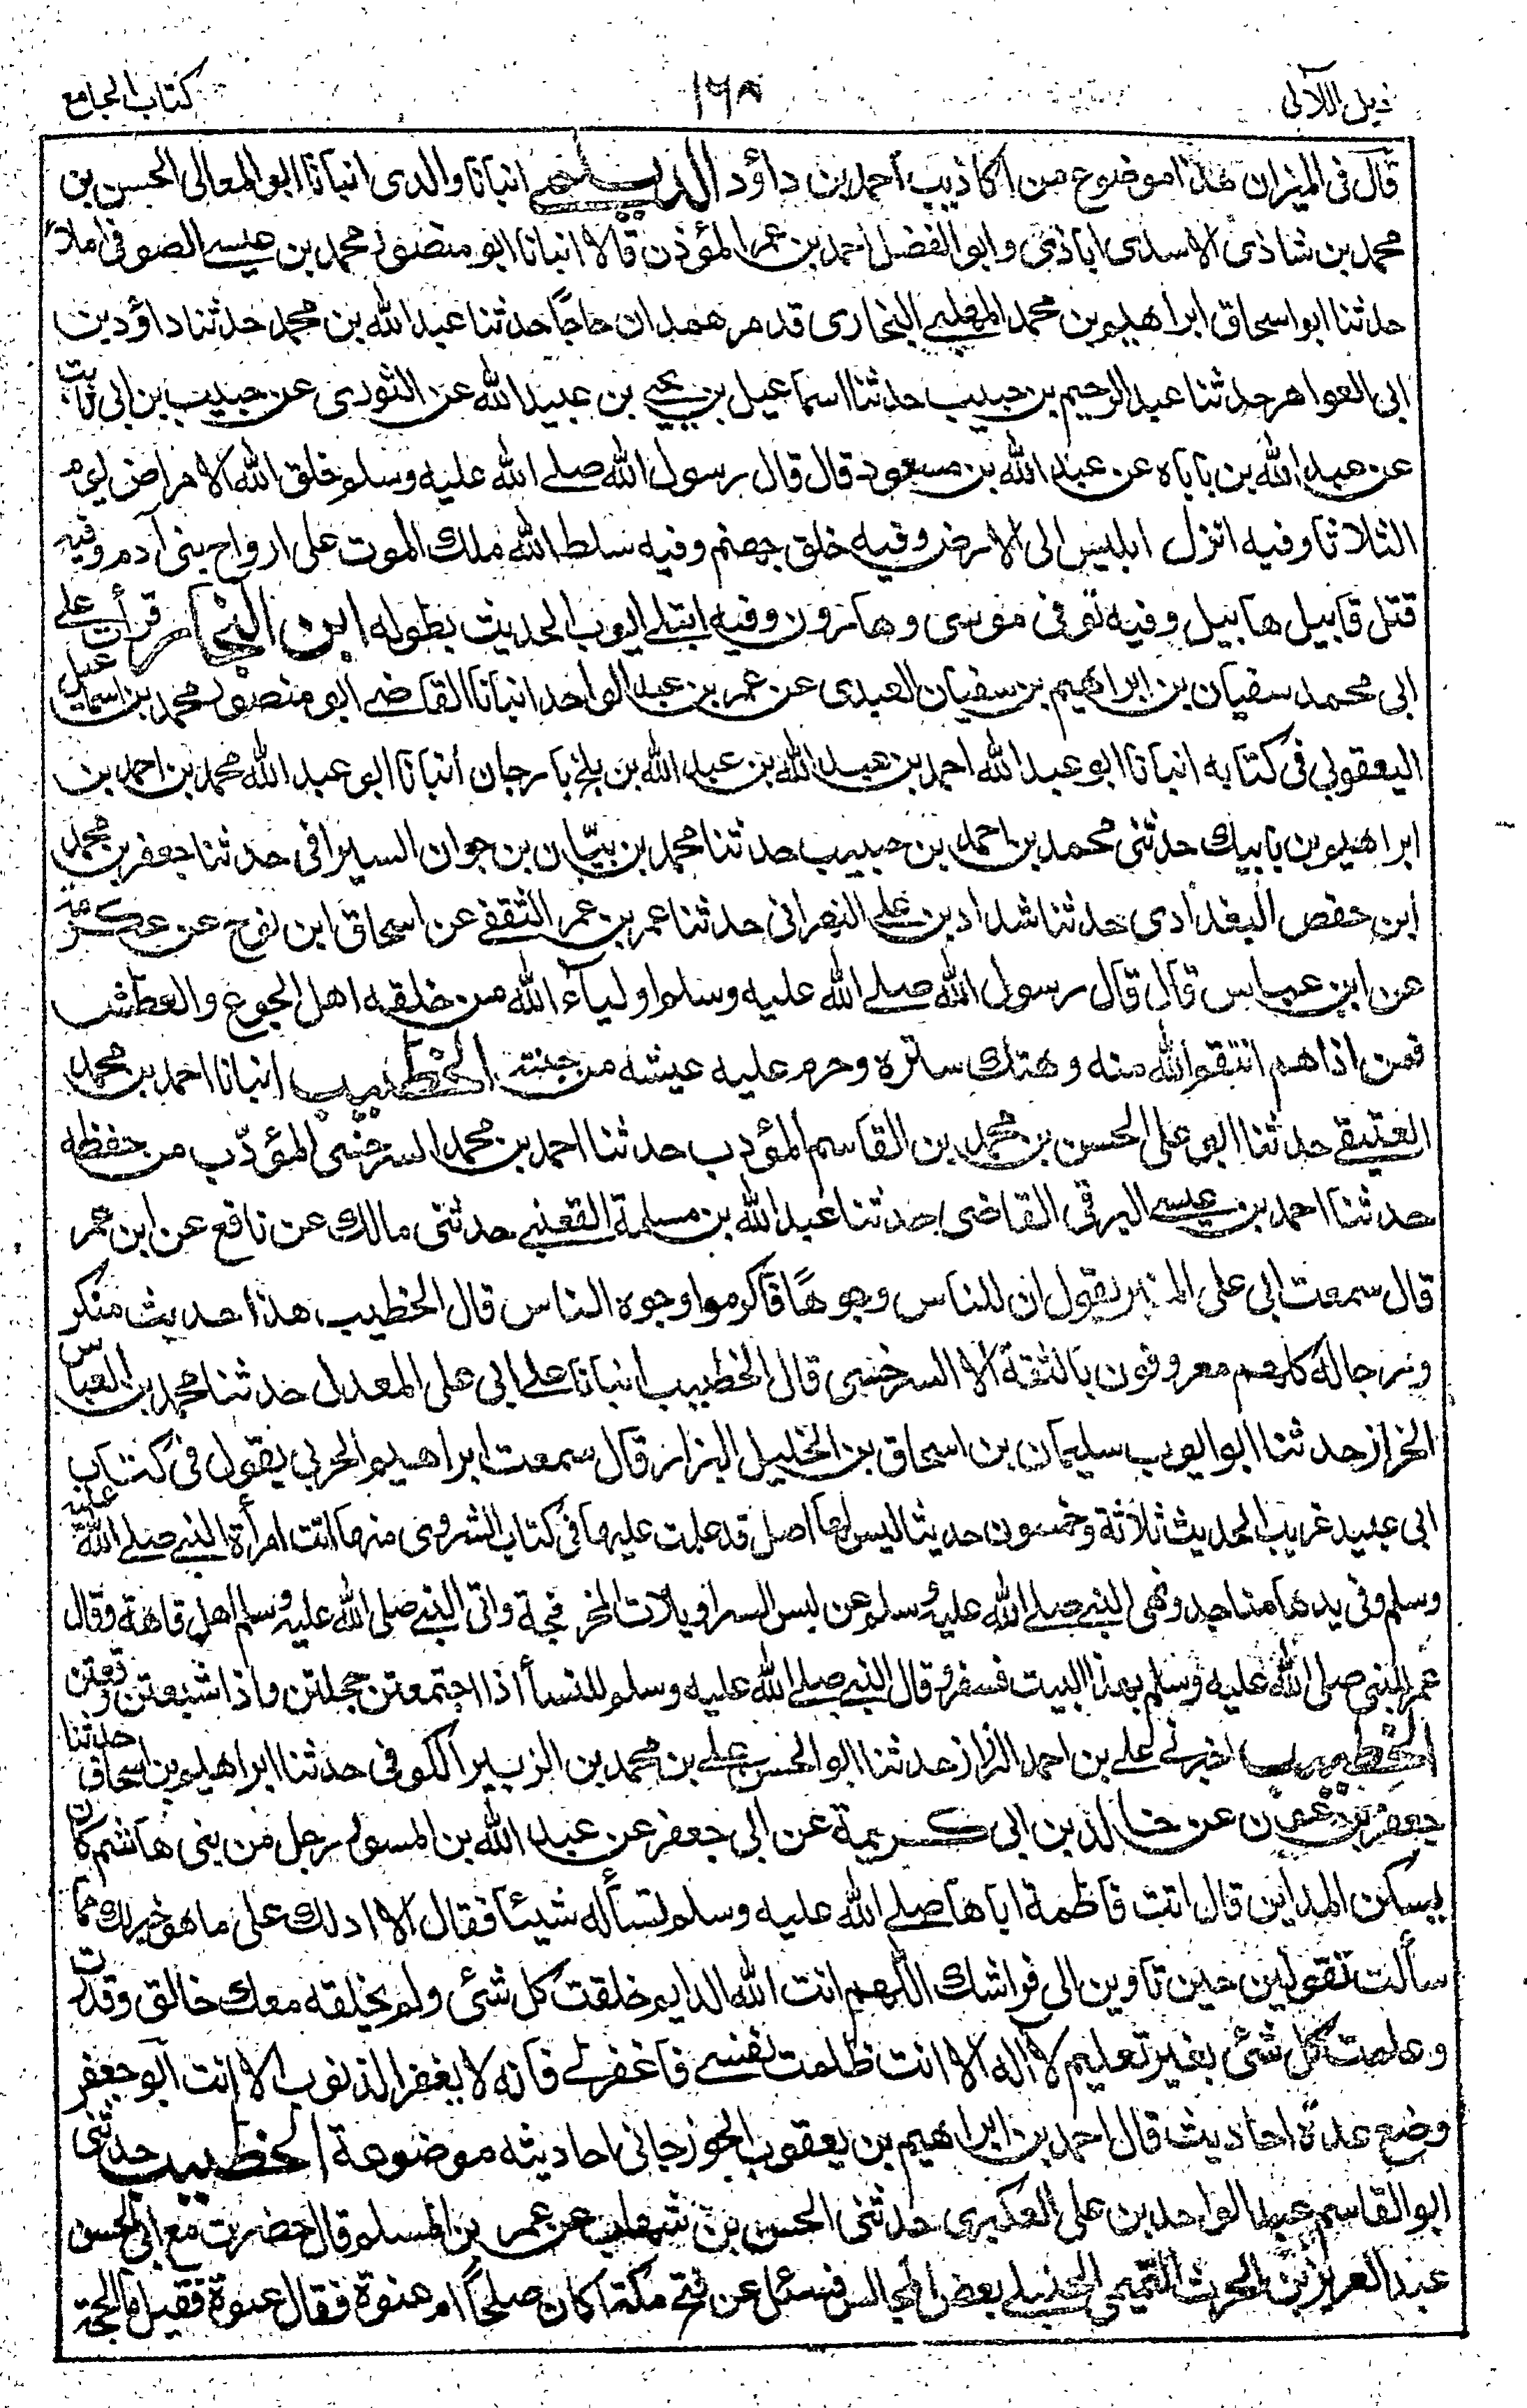 ذيل اللآلى ١٦٨ كتاب الجامع
قال فى الميزان هذا موضوع من اكاذيب أحمد بن داؤد الديلمى انبانا والدى انبانا ابو المعالى الحسن بن
محمد بن شاذى الاسدى اباذى وابو الفضل احمد بن عمر المؤذن قالا انبانا ابو منصور محمد بن عيسى الصوفى املاً
حدثنا ابو اسحاق ابراهيم بن محمد المهلبى البخارى قدم همدان حاجاً حدثنا عبد الله بن محمد حدثنا داؤد بن
ابى العوام حدثنا عبد الرحيم بن حبيب حدثنا اسماعيل بن يحيى بن عبيد الله عن الثورى عن حبيب بن ابى ثابت
عن عبد الله بن باباه عن عبد الله بن مسعود قال قال رسول الله صلى الله عليه وسلم خلق الله الامراض يوم
الثلاثا وفيه انزل ابليس الى الارض وفيه خلق جهنم وفيه سلط الله ملك الموت على ارواح بنى آدم وفيه
قتل قابيل هابيل وفيه توفى موسى وهارون وفيه ابتلى ايوب الحديث بطوله ابن النجار قرأت على
ابى محمد سفيان بن ابراهيم بن سفيان العبدى عن عمر بن عبد الواحد انبانا القاضى ابو منصور محمد بن اسماعيل
اليعقوبى فى كتابه انبانا ابو عبد الله احمد بن عبد الله بن عبد الله بن بلخ بارجان أنبانا ابو عبد الله محمد بن احمد بن
ابراهيم بن بابيك حدثنى محمد بن احمد بن حبيب حدثنا محمد بن بيّان بن جوان السيرافى حدثنا جعفر بن محمد
ابن حفص البغدادى حدثنا شداد بن على النهرانى حدثنا عمر بن عمر الثقفى عن اسحاق ابن نوح عن عكرمة
عن ابن عباس قال قال رسول الله صلى الله عليه وسلم اولياء الله من خلقه اهل الجوع والعطش
فمن اذاهم انتقم الله منه وهتك ستره وحرم عليه عيشه من جنته الخطيب انبانا احمد بن محمد
العتيقى حدثنا ابو على الحسن بن محمد بن القاسم المؤدب حدثنا احمد بن محمد السرخسى المؤدّب من حفظه
حدثنا احمد بن عيسى البرقى القاضى حدثنا عبد الله بن مسلمة القعنبى حدثنى مالك عن نافع عن ابن عمر
قال سمعت ابى على المنبر يقول ان للناس وجوهاً فاكرموا وجوه الناس قال الخطيب هذا حديث منكر
ورجاله كلهم معروفون بالثقة الا السرخسى قال الخطيب انبانا على ابى على المعدل حدثنا محمد بن العباس
الخراز حدثنا ابو ايوب سليمان بن اسحاق بن الخليل البزار قال سمعت ابراهيم الحربى يقول فى كتاب
ابى عبيد غريب الحديث ثلاثة وخمسون حديثا ليس لها اصل قد علمت عليها فى كتاب الشروى منها اتت امرأة النبى صلى الله عليه
وسلم وفى يدها مناجد ونهى النبى صلى الله عليه وسلم عن لبس السراويلات المخرفجة واتى النبى صلى الله عليه وسلم اهل قاهة وقال
عمر للنبى صلى الله عليه وسلم بهذا البيت فسفر وقال النبى صلى الله عليه وسلم للنسأ اذا اجتمعتن خجلتن واذا شبعتن دقعتن
الخطيب اخبرنى على بن احمد الرزاز حدثنا ابو الحسن على بن محمد بن الزبير الكوفى حدثنا ابراهيم بن اسحاق حدثنا
جعفر بن عون عن خالد بن ابى كريمة عن ابى جعفر عن عبد الله بن المسور رجل من بنى هاشم كان
يسكن المداين قال اتت فاطمة اباها صلى الله عليه وسلم تسأله شيئاً فقال الا ادلك على ما هو خير لك مما
سألت تقولين حين تاوين الى فراشك اللهم انت الله الدايم خلقت كل شئى ولم يخلقه معك خالق وقدرت
وعلمت كل شئى بغير تعليم لا اله الا انت ظلمت نفسى فاغفر لى فانه لا يغفر الذنوب الا انت ابو جعفر
وضع عدة احاديث قال احمد بن ابراهيم بن يعقوب الجوزجانى احاديثه موضوعة الخطيب حدثنى
ابو القاسم عبد الواحد بن على العكبرى حدثنى الحسن بن شهاب عن عمر بن المسلم قال حضرت مع ابى الحسن
عبد العزيز بن الحرث التميمى الحنبلى بعض المجالس فسئل عن فتح مكة اكان صلحاً ام عنوة فقال عنوة فقيل ما الحجة